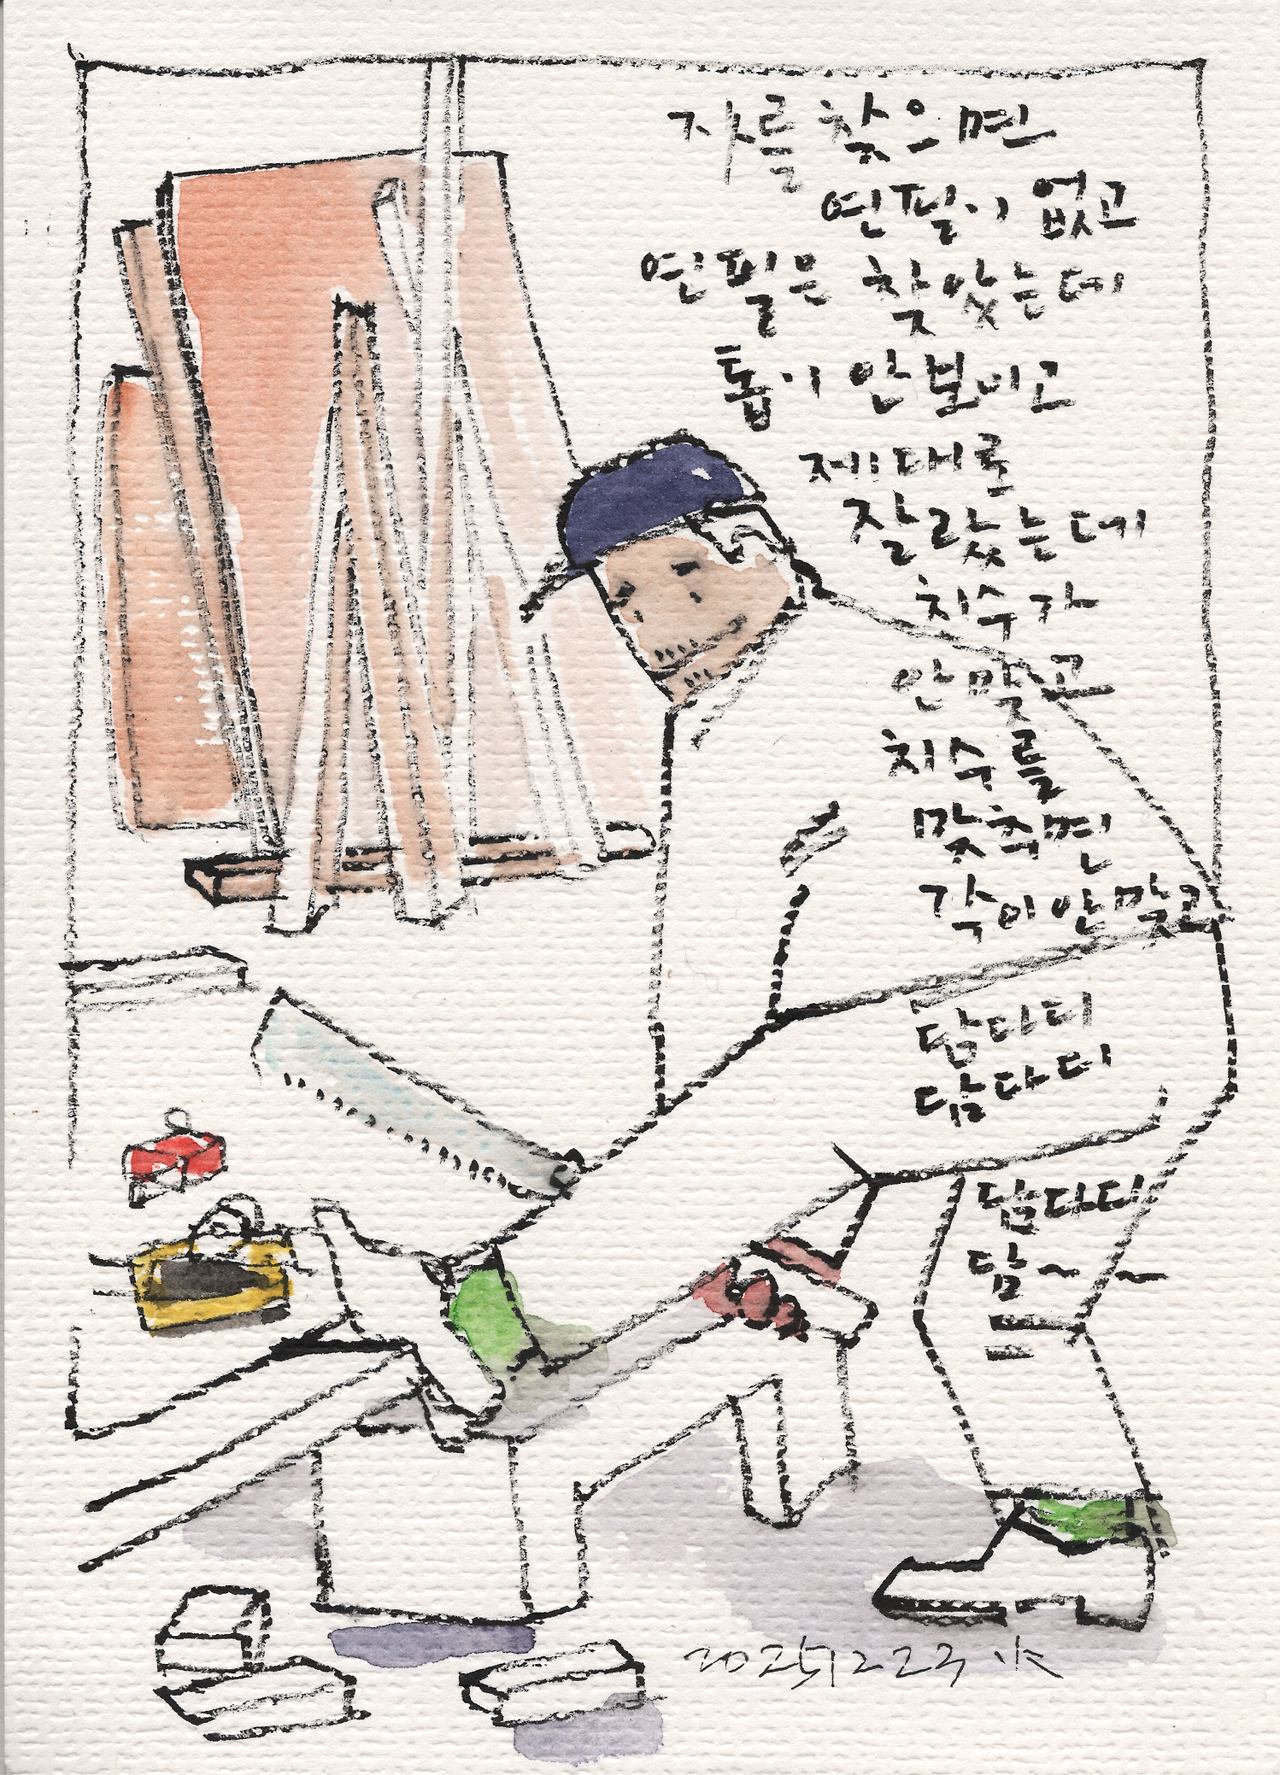 자를 찾으면
연필이 없고
연필은 찾았는데
톱이 안보이고
제대로
잘랐는데
치수가
안맞고
치수를
맞추면
각이 안맞고
담다디
담다디
담다디
담~ ~
20251223 火